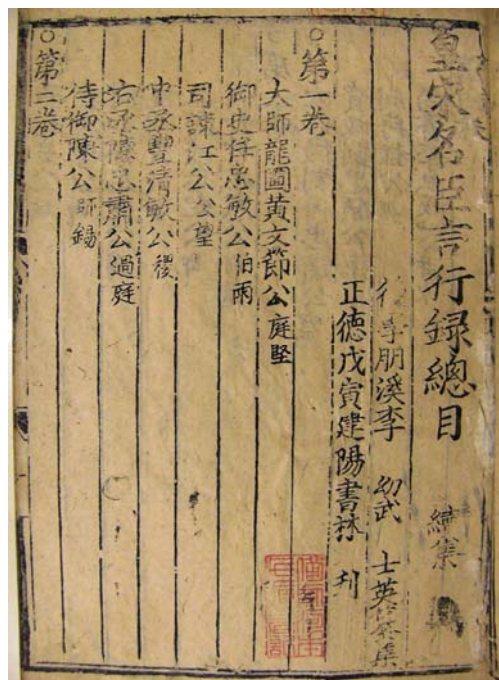 皇宋名臣言行錄總目 續集
後學朋溪李 幼武 士英 集
正德戊寅建陽書林 刊
○第一卷
大師龍圖黃文節公庭堅
御史任忠敏公伯雨
司諫江公公望
中丞豐清敏公稷
右丞陳忠肅公過庭
侍御陳公師錫
○第二卷